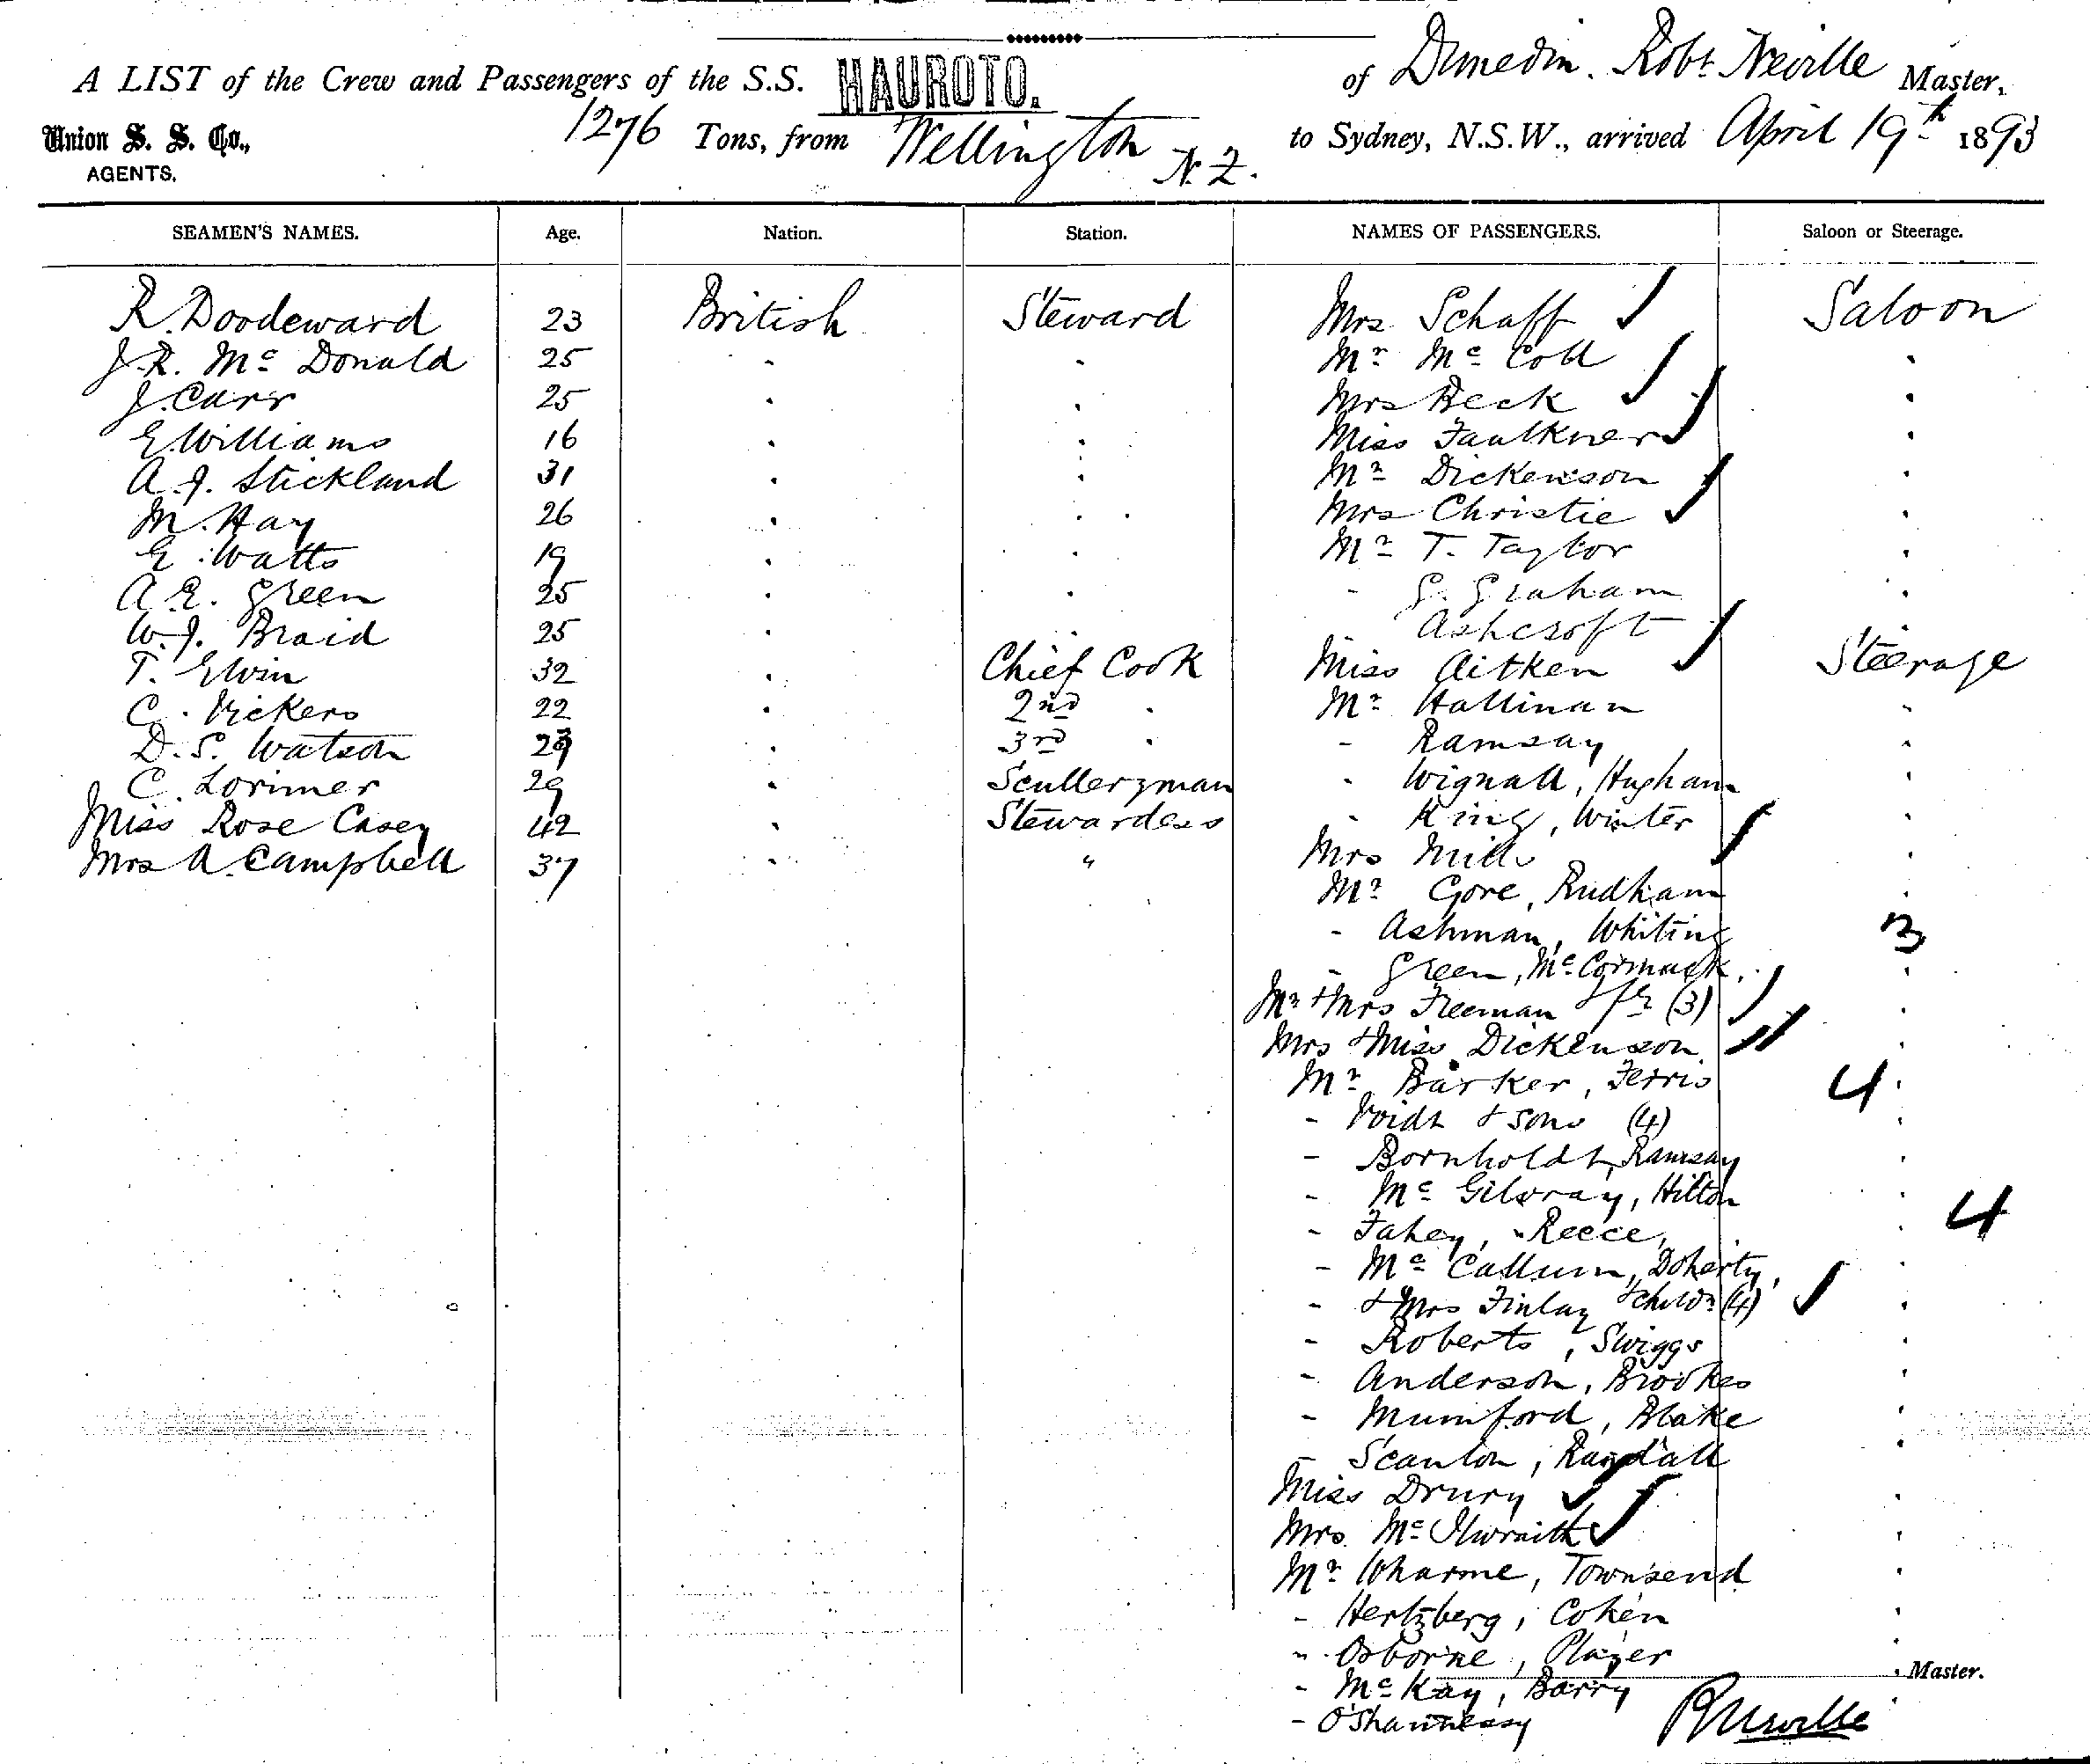 A LIST of the Crew and Passengers of the S.S. HAUROTO. of Dunedin. Robt Neville Master,
Union S. S. Co., 1276 Tons, from Wellington N.Z. to Sydney, N.S.W., arrived April 19th 1893
AGENTS.
SEAMEN'S NAMES. Age. Nation. Station. NAMES OF PASSENGERS. Saloon or Steerage.
R. Doodeward 23 British Steward Mrs Schaff Saloon
J.R. Mc Donald 25 " " Mr Mc Coll "
J. Carr 25 " " Mrs Beck "
E. Williams 16 " " Miss Faulkner "
A.J. Stickland 31 " " Mr Dickenson "
M. Hay 26 " " Mrs Christie "
E. Watts 19 " " Mr T. Taylor "
A.E. Green 25 " " - G. Graham "
W.J. Braid 25 " " Ashcroft "
T. Elvin 32 " Chief Cook Miss Aitken Steerage
C. Vickers 22 " 2nd " Mr Hallinan "
D.S. Watson " 3rd " - Ramsay "
C. Lorimer 29 " Sculleryman - Wignall, Hugham "
Miss Rose Casey 42 " Stewardess - King, Winter "
Mrs A. Campbell 37 " " Mrs Mills "
Mr Gore, Rudham "
- Ashman, Whiting 3
- Green, Mc Cormack, "
Mr & Mrs Freeman & (3) "
Mrs & Miss Dickenson "
Mr Barker, Ferris 4 "
- Voidt & sons (4) "
- Bornholdt, Ramsay "
- Mc Gilvray, Hilton "
- Fahey, Reece, " 4
- Mc Callum, Doherty, "
- & Mrs Finlay & childn (4) "
- Roberts, Swiggs "
- Anderson, Brookes "
- Mumford, Blake "
- Scanlon, Randall "
Miss Drury "
Mrs. Mc Ilwraith "
Mr Wharme, Townsend "
- Hertzberg, Cohen "
" Osborne, Player "
- Mc Kay, Barry " Master.
- O'Shannessy RNeville